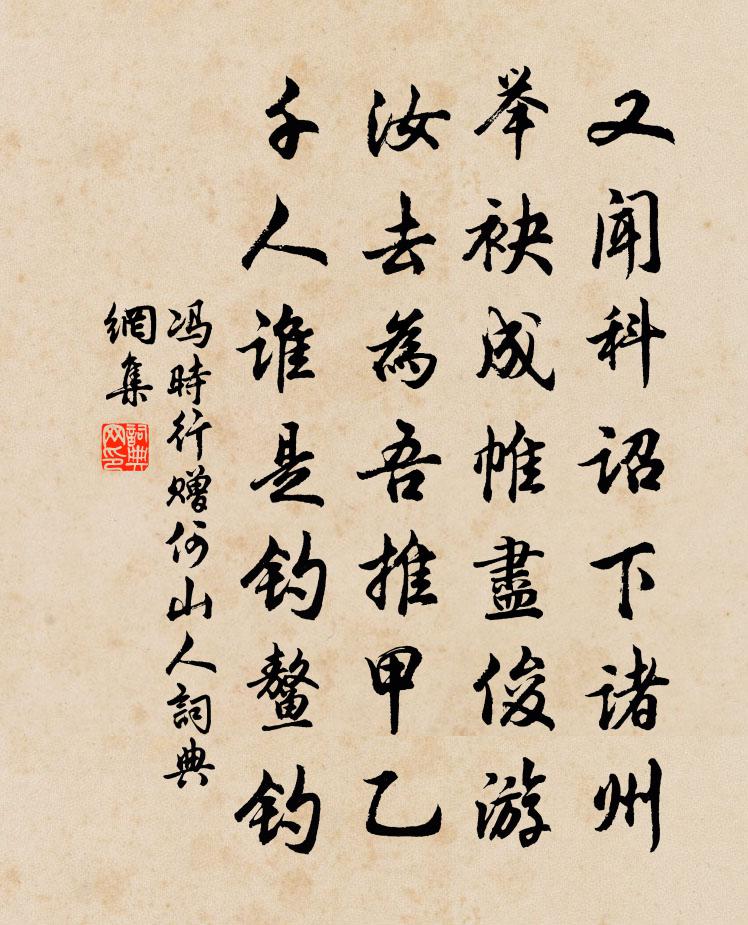 又闻科诏下诸州
举袂成帷盡俊游
汝去為吾推甲乙
千人谁是钓鳌钓
冯時行赠何山人詞典
網集
詞典
网印